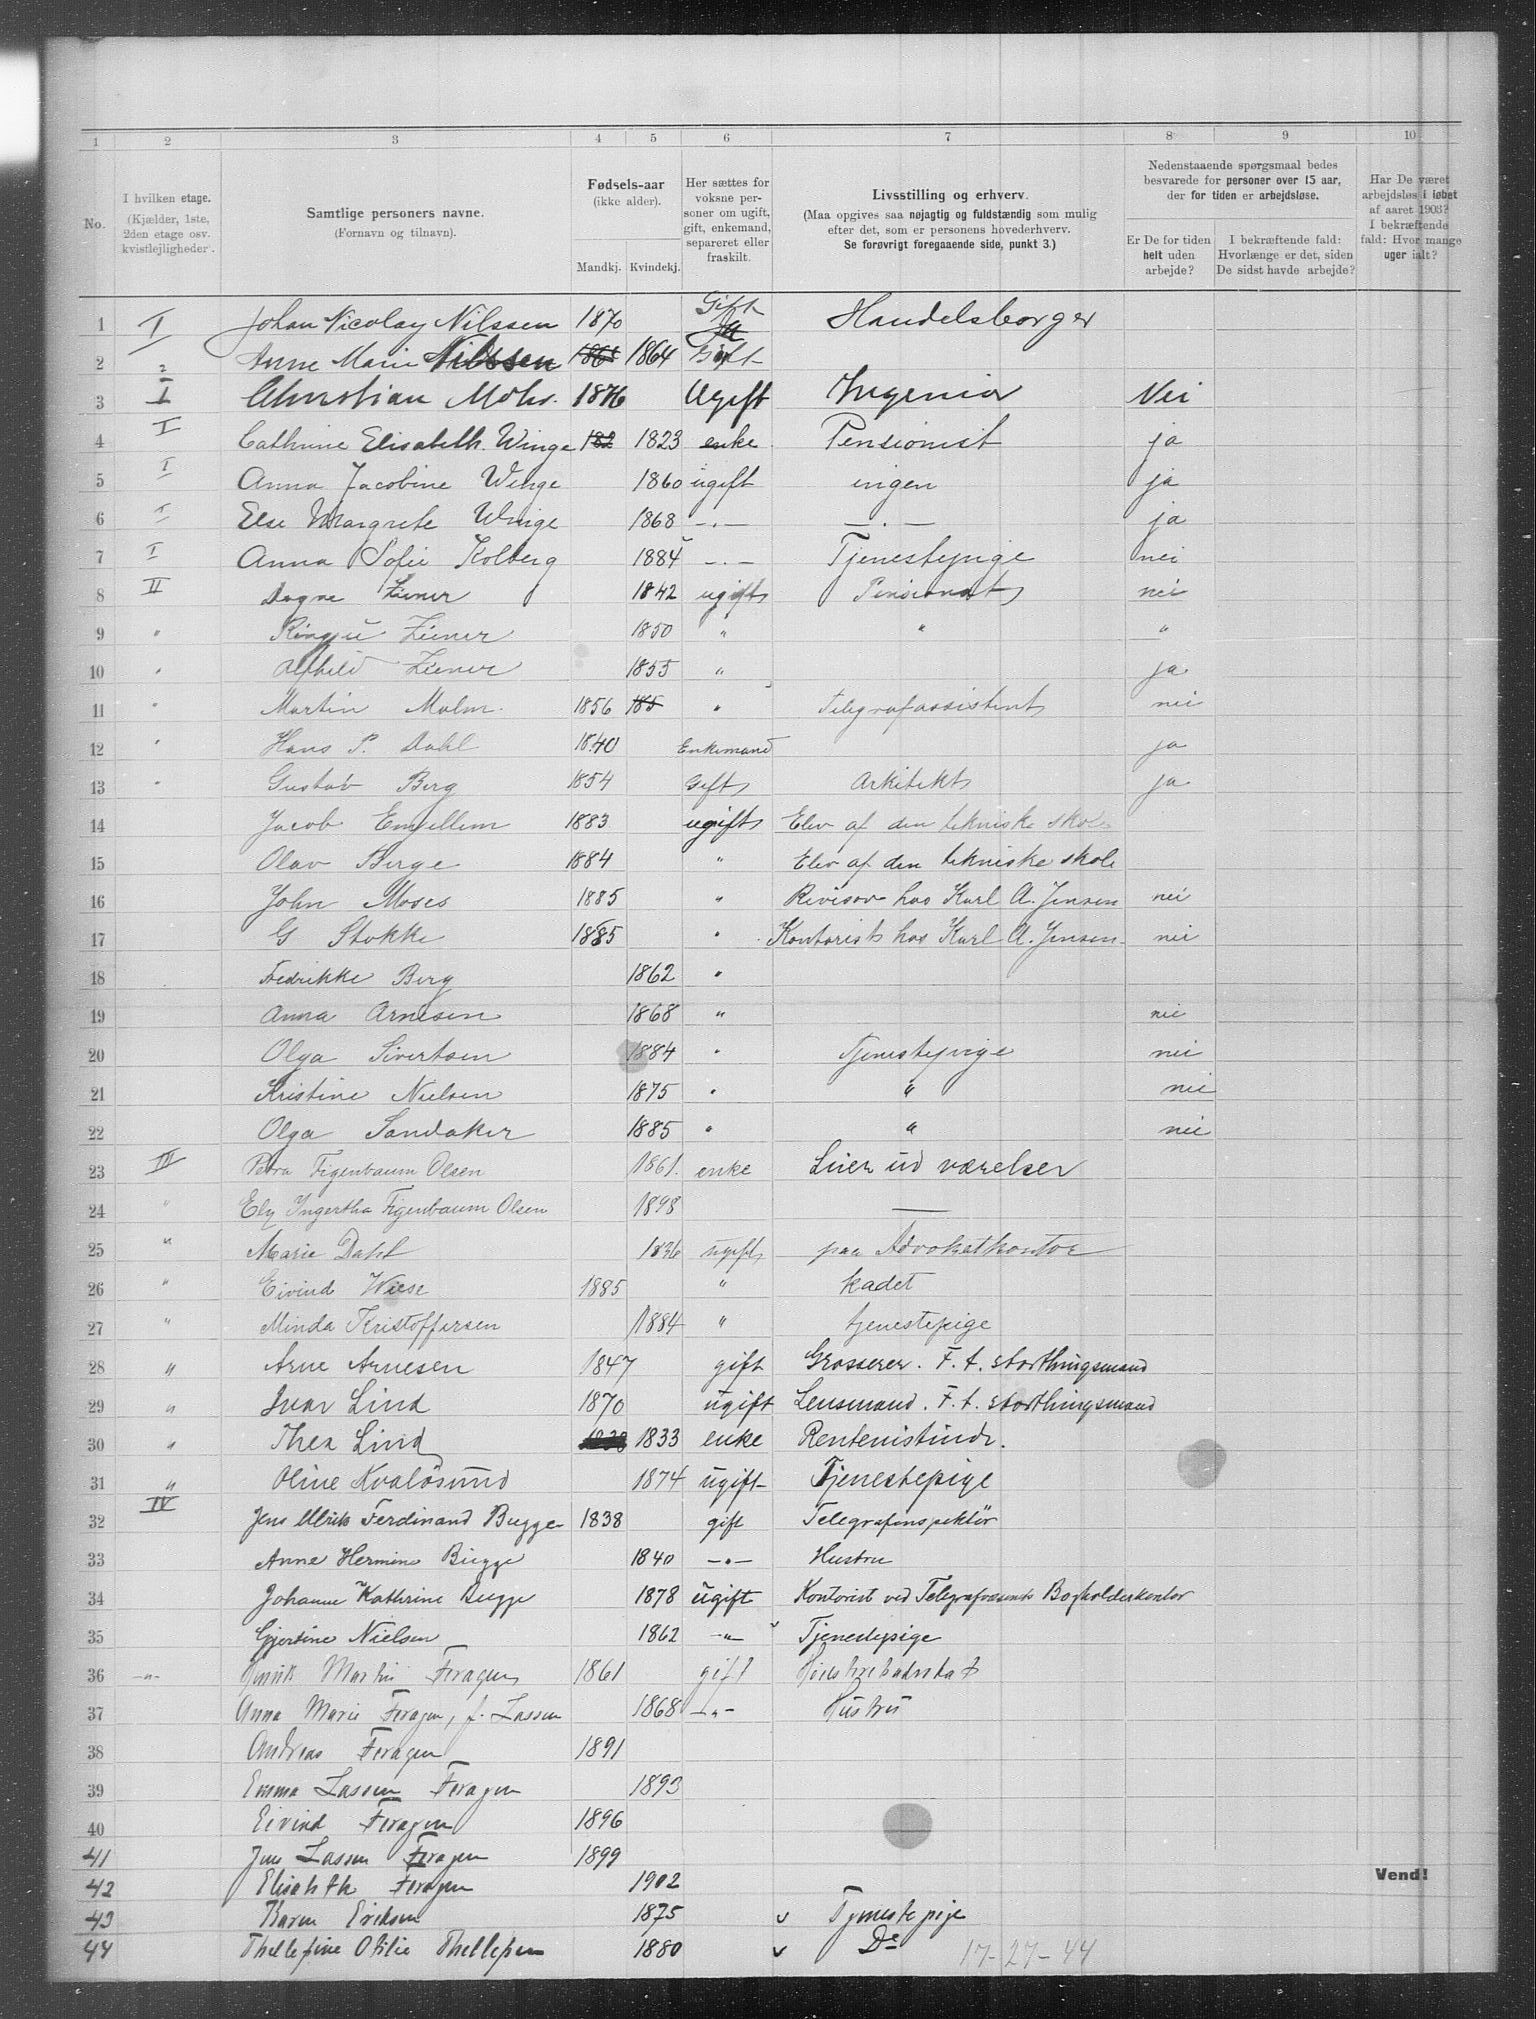 1 2 3 4 5 6 7 8 9 10
No.
I hvilken etage.
(Kjælder, 1ste, 2den etage osv. kvistlejligheder.)
Samtlige personers navne.
(Fornavn og tilnavn).
Fødsels-aar
(ikke alder).
Mandkj. Kvindekj.
Her sættes for voksne personer om ugift, gift, enkemand, separeret eller fraskilt.
Livsstilling og erhverv.
(Maa opgives saa nøjagtig og fuldstændig som mulig efter det, som er personens hovederhverv.
Se forøvrigt foregaaende side, punkt 3.)
Nedenstaaende spørgsmaal bedes besvarede for personer over 15 aar, der for tiden er arbejdsløse.
Er De for tiden helt uden arbejde?
I bekræftende fald: Hvorlænge er det, siden De sidst havde arbejde?
Har De været arbejdsløs i løbet af aaret 1903? I bekræftende fald: Hvor mange uger ialt?
1 I Johan Nicolay Nilssen 1870 Gift Handelsborger
2 Anne Marie Nilssen 1864 Gift
3 I Christian Mohr. 1876 Ugift Ingeniør Nei
4 I Cathrine Elisabeth Winge 182 1823 enke Pensionist ja
5 I Anna Jacobine Winge 1860 ugift ingen ja
6 I Else Margrete Winge 1868 -.- -.- ja
7 I Anna Sofie Kolberg 1884 -.- Tjenestepige nei
8 II Dagne Ziener 1842 ugift Pensionat nei
9 " Ziener 1850 " " "
10 " Alfhild Ziener 1855 " ja
11 " Martin Malm. 1856 185 " Telegrafassistent nei
12 " Hans P. Dahl 1840 Enkemand ja
13 " Gustav Berg 1854 Gift Arkitekt ja
14 Jacob 1883 ugift Elev af den tekniske skole
15 Olav Berge 1884 " Elev af den tekniske skole
16 John Moses 1885 " Revisor hos Karl A. Jensen nei
17 G Stokke 1885 " Kontorist hos Karl A. Jensen nei
18 Fredrikke Berg 1862 "
19 Anna Arnesen 1868 " nei
20 Olga Sivertsen 1884 " Tjenestepige nei
21 Kristine Nielsen 1875 " " nei
22 Olga Sandaker 1885 " " nei
23 III Petra Figenbaum Olsen 1861. enke Leier ud værelser
24 " Ely Ingertha Figenbaum Olsen 1898 —
25 " Marie Dahl 1836 ugift paa Advokatkontor
26 " Eivind Wiese 1885 " kadet
27 " Minda Kristoffersen 1884 " tjenestepige
28 " Arne Arnesen 1847 gift Grosserer. F. t. storthingsmand
29 " Ivar Lind 1870 ugift Lensmand. F. t. storthingsmand
30 " Thea Lind 1833 enke Rentenistinde.
31 " Oline Kvaløsund 1874 ugift Tjenestepige
32 IV Jens Ulrik Ferdinand Bugge 1838 gift Telegrafinspektør
33 Anne Hermine Bugge 1840 -"- Hustru
34 Johanne Kathrine Bugge 1878 ugift Kontorist ved Telegrafvæsenets Bogholderkontor
35 Gjertine Nielsen 1862 -"- Tjenestepige
36 -"- Henrik Martin Feragen 1861 gift
37 Anna Marie Feragen, f. Lassen 1868 -"- Hustru
38 Andreas Feragen 1891
39 Emma Lassen Feragen 1893
40 Eivind Feragen 1896
41 Jens Lassen Feragen 1899
42 Elisabeth Feragen 1902
43 Karen Eriksen 1875 v Tjenestepige
44 Thellefine Otilie Thellefsen 1880 v Do 17-27-44
Vend!